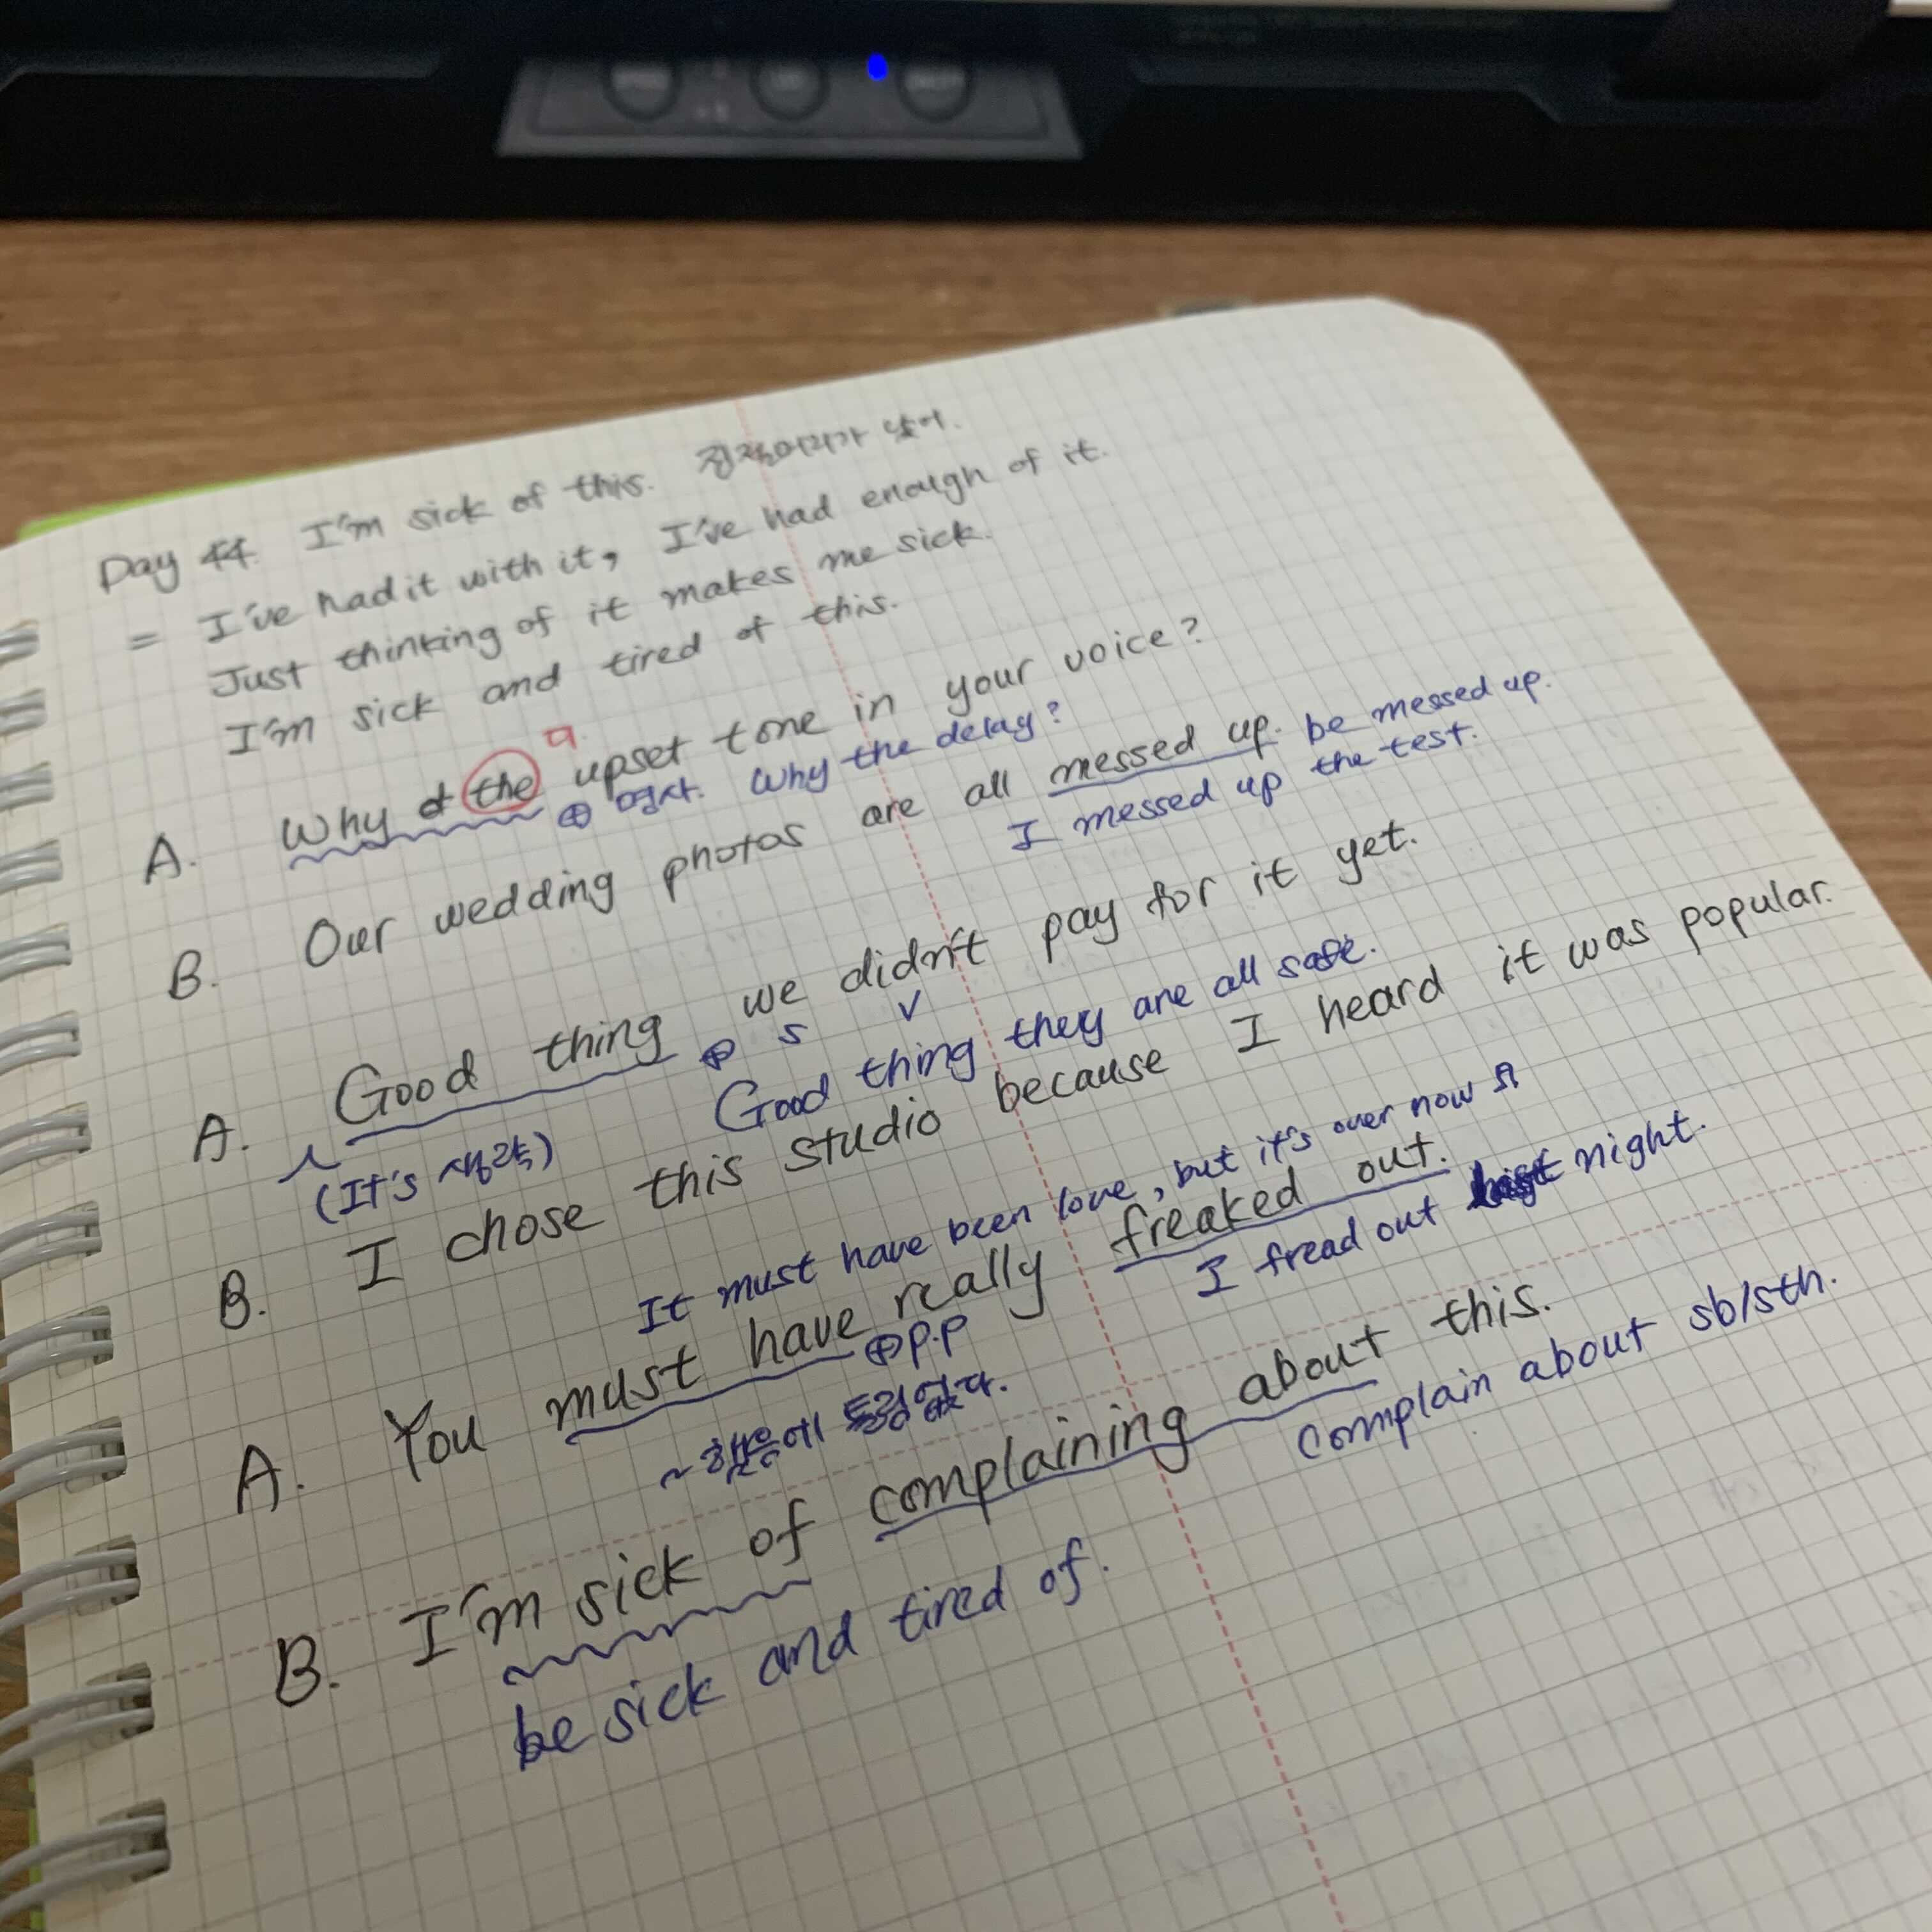 Day 44. I'm sick of this. 진절머리가 났어.
= I've had it with it, I've had enough of it.
Just thinking of it makes me sick.
I'm sick and tired of this.
a
A. Why the upset tone in your voice?
⊕ 명사. Why the delay?
B. Our wedding photos are all messed up. be messed up.
I messed up the test.
A. Good thing we didn't pay for it yet.
⊕ S V
(It's 생략) Good thing they are all safe.
B. I chose this studio because I heard it was popular.
It must have been love, but it's over now ♬
A. You must have really freaked out.
⊕ p.p I fread out last night.
~ 했음에 틀림없다.
B. I'm sick of complaining about this.
complain about sb/sth.
be sick and tired of.